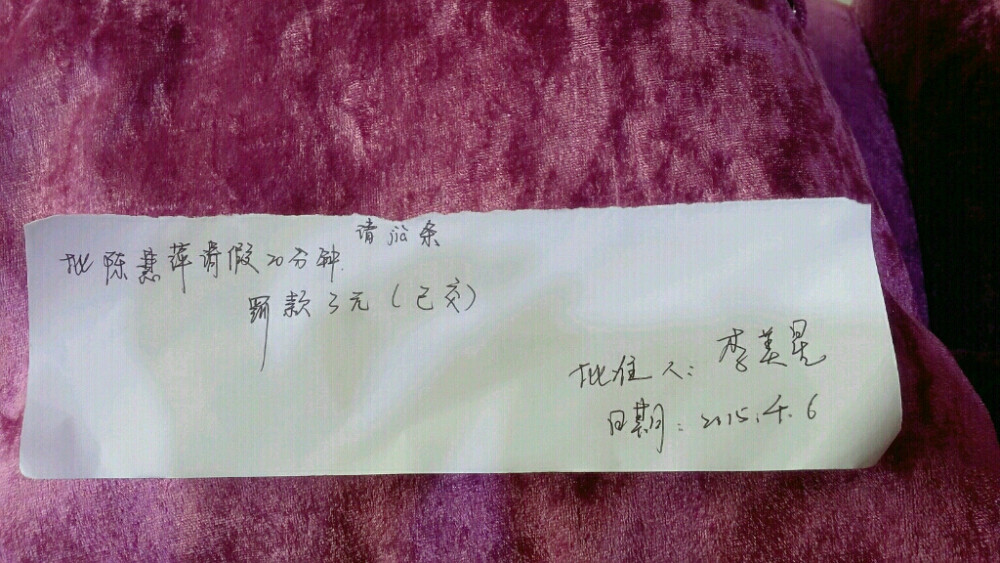 请假条
批陈慧萍请假20分钟.
罚款3元(已交)
批准人:李美昆
日期:2015.4.6